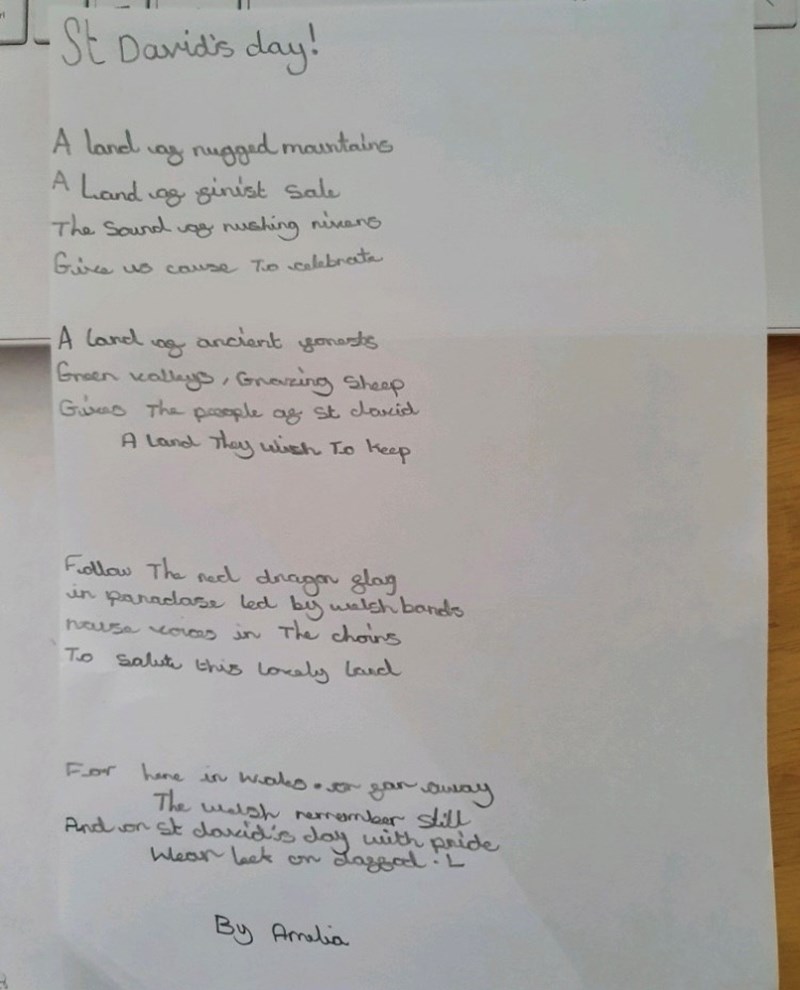 St David's day!
A land of rugged mountains
A Land of finist Sale
The Sound of rushing rivers
Give us cause To celebrate
A land of ancient forests
Green valleys, Grazing Sheep
Gives The people of St david
A Land They wish To keep
Follow The red dragon flag
in paradase led by welsh bands
rause voices in The choirs
To Salute this Lovely Land
For here in wales or far away
The welsh remember Still
And on St david's day with pride
Wear leek or daffod.L
By Amelia